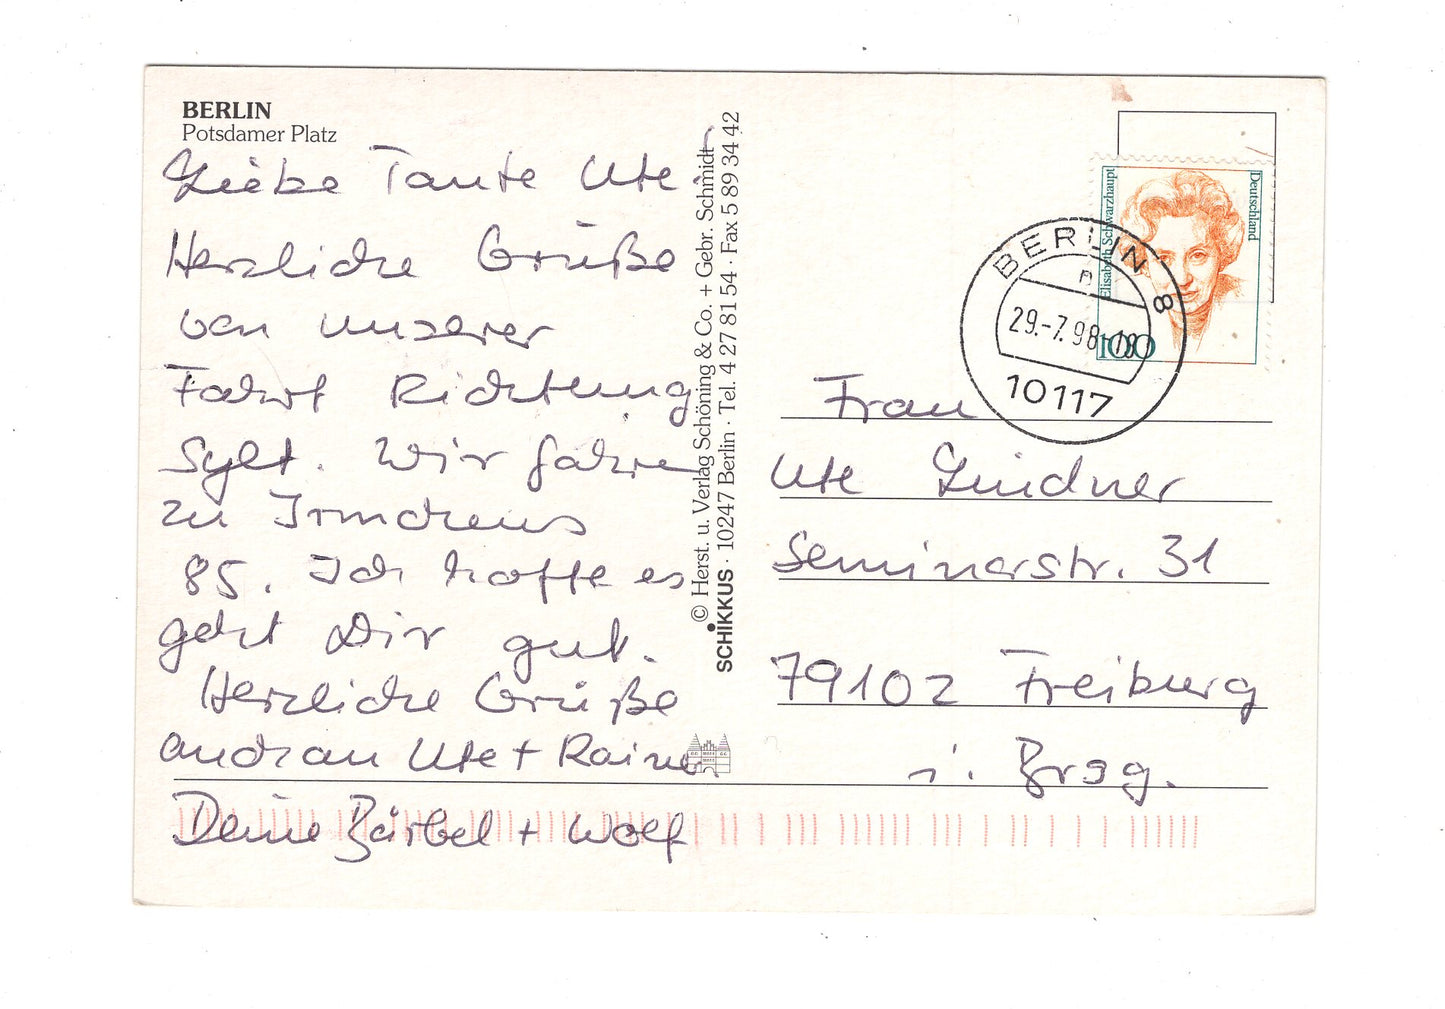 BERLIN
Potsdamer Platz
Liebe Tante Ute!
Herzliche Grüße
von unserer
Fahrt Richtung
Sylt. Wir fahren
zu Irmchens
85. Ich hoffe es
geht Dir gut.
Herzliche Grüße
auch an Ute + Rainer.
Deine Bärbel + Wolf
© Herst. u. Verlag Schöning & Co. + Gebr. Schmidt
SCHIKKUS · 10247 Berlin · Tel. 4 27 81 54 · Fax 5 89 34 42
Deutschland
Elisabeth Schwarzhaupt
100
BERLIN 8
n
29.-7.98-18
10117
Frau
Ute Lindner
Seminarstr. 31
79102 Freiburg
i. Brsg.